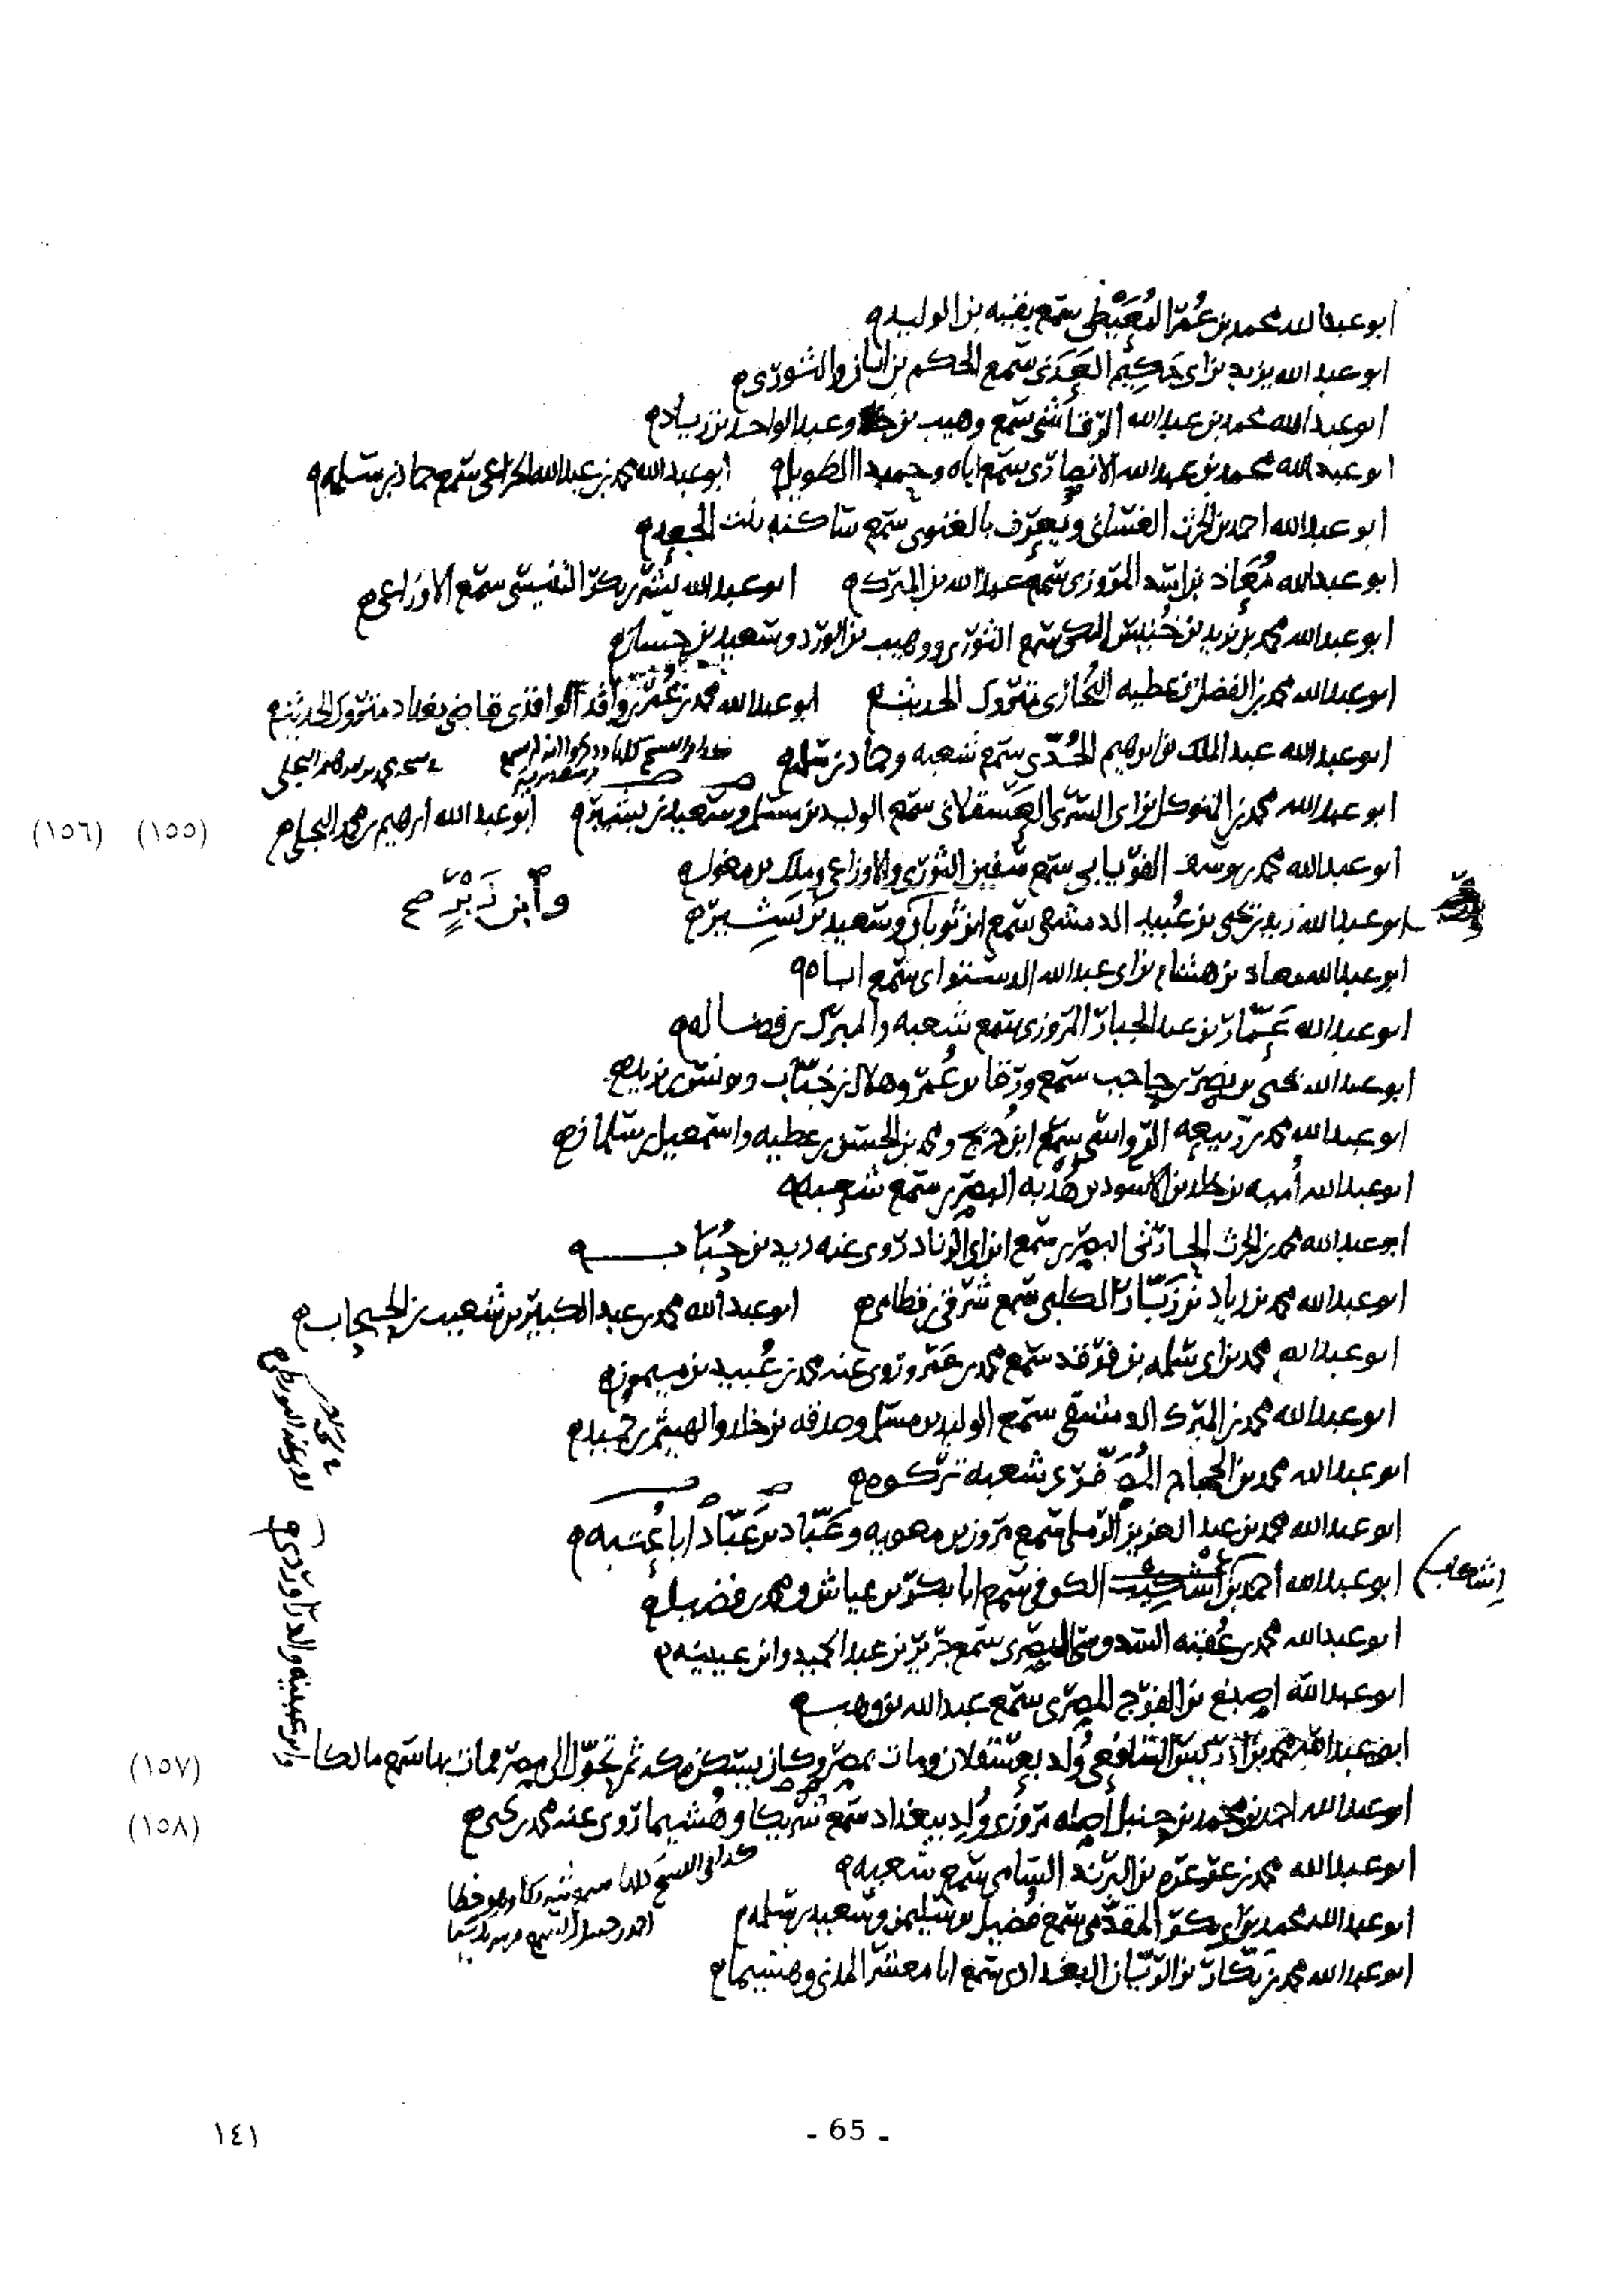 ابو عبد الله محمد بن عُمَر المُعَيْطي سمع بقيه بن الوليد
ابو عبد الله يزيد بن ابى حَكِيم العَدَنى سمع الحكم بن ابان والثورى
ابو عبد الله محمد بن عبد الله الرقاشى سمع وهيب بن خلد وعبد الواحد بن زياد
ابو عبد الله محمد بن عبد الله الانصارى سمع اباه وحميدا الطويل ابو عبد الله محمد بن عبد الله الخزاعى سمع حماد بن سلمه
ابو عبد الله احمد بن الحرث الغسانى ويعرف بالغنوى سمع ساكنه بنت الجعد
ابو عبد الله مُعَاذ بن اسد المروزى سمع عبد الله بن المبرك ابو عبد الله بشر بن بكر التنيسى سمع الاوزاعى
ابو عبد الله محمد بن يزيد بن خُنيس المكى سمع الثورى ووهيب بن الورد وسعيد بن حسان
ابو عبد الله محمد بن الفضل بن عطيه البُخارى متروك الحديث ابو عبد الله محمد بن عُمَر بن واقد الواقدى قاضى بغداد متروك الحديث
ابو عبد الله عبد الملك بن ابرهيم الجُدّى سمع شعبه وحماد بن سلمه
ابو عبد الله محمد بن المتوكل بن ابى السرى العسقلانى سمع الوليد بن مسلم وسعيد بن بشير ابو عبد الله ابرهيم بن محمد البجلى
(١٥٥) (١٥٦)
ابو عبد الله محمد بن يوسف الفريابى سمع سفين الثورى والاوزاعى وملك بن مغول
ابو عبد الله زيد بن يحيى بن عُبيد الدمشقى سمع ابن ثوبان وسعيد بن بشير
وابن زَبْرٍ صح
ابو عبد الله معاذ بن هشام بن ابى عبد الله الدستوائى سمع اباه
ابو عبد الله عَمّار بن عبد الجبار المروزى سمع شعبه والمبرك بن فضاله
ابو عبد الله يحيى بن نصر بن حاجب سمع ورقا بن عُمر وهلال بن خبّاب ويونس بن يزيد
ابو عبد الله محمد بن ربيعه الرواسى سمع ابن جُريج ومحمد بن الحسن بن عطيه واسمعيل بن سلمان
ابو عبد الله أُميه بن خلد بن الاسود بن هُدبه البصرى سمع شعبه
ابو عبد الله محمد بن الحرث الحارثى البصرى سمع ابن ابى الزناد روى عنه زيد بن حُبَاب
ابو عبد الله محمد بن زياد بن زَبّار الكلبى سمع شرقى بن قطامى ابو عبد الله محمد بن عبد الكبير بن شعيب بن الحبحاب
ابو عبد الله محمد بن ابى سلمه بن فرقد سمع محمد بن عَمرو روى عنه محمد بن عُبيد بن ميمون
ابو عبد الله محمد بن المبرك الدمشقى سمع الوليد بن مسلم وصدقه بن خلد والهيثم بن حميد
ابو عبد الله محمد بن الحجاج المُصَفّر عن شعبه تركوه
ابو عبد الله محمد بن عبد العزيز الرملى سمع مروان بن معويه وعَبّاد بن عَبّاد ابا عُتبه
ابو عبد الله احمد بن إشكيب الكوفى سمع ابا بكر بن عياش ومحمد بن فضيل
إشكاب
ابو عبد الله محمد بن عُقبه السدوسى البصرى سمع جرير بن عبد الحميد وابن عيينه
ابو عبد الله اصبغ بن الفرج المصرى سمع عبد الله بن وهب
ابو عبد الله محمد بن ادريس الشافعى وُلد بعسقلان ومات بمصر وكان يسكن مكه ثم تحوّل الى مصر فمات بها سمع مالكا
وابن عيينه والدراوردى
(١٥٧)
ابو عبد الله احمد بن محمد بن حنبل اصله مروزى وُلِد ببغداد سمع شريكا وهُشيما روى عنه محمد بن يحيى
(١٥٨)
ابو عبد الله محمد بن عرعره بن البرند السامى سمع شعبه
ابو عبد الله محمد بن ابى بكر المقدّمى سمع فُضيل بن سليمن وسعيد بن سلمه
ابو عبد الله محمد بن بَكّار بن الريّان البغدادى سمع ابا معشر المدنى وهشيما
- 65 -
١٤١